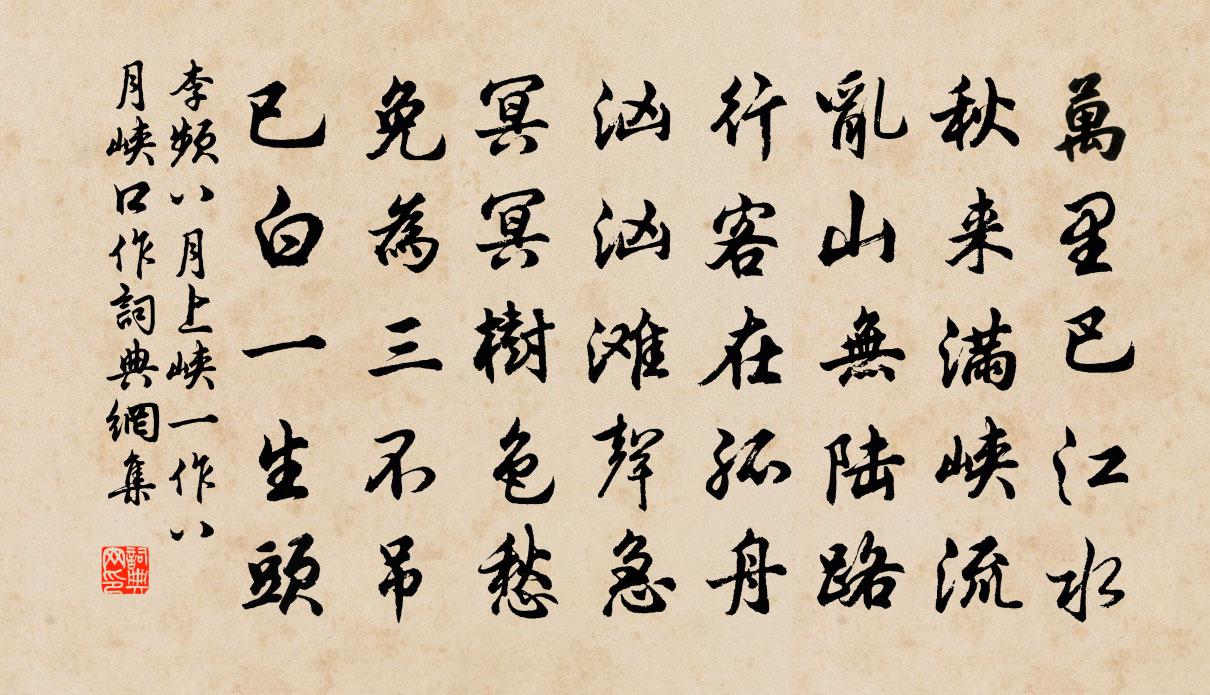 萬里巴江水
秋来滿峡流
亂山無陆路
行客在孤舟
汹汹滩聲急
冥冥樹色愁
免為三不吊
已白一生頭
李频八月上峡一作八
月峡口作詞典網集
詞典网印